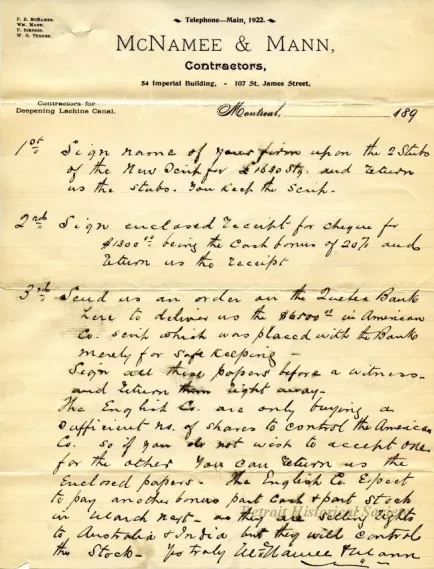 F. E. McNamee.
Wm. Mann.
F. Simpson.
W. G. Turner.
Telephone—Main, 1922.
McNamee & Mann,
Contractors,
54 Imperial Building, - 107 St. James Street,
Contractors for
Deepening Lachine Canal.
Montreal, 189
1st Sign name of your firm upon the 2 Stubs
of the New Scrip for £1630 Stg. and return
us the stubs. You keep the scrip.
2nd Sign enclosed receipt for cheque for
$1300.00 being the cash bonus of 20% and
return us the receipt
3rd Send us an order on the Quebec Bank
here to deliver us the $6500.00 in American
Co. scrip which was placed with the Bank
merely for safe keeping -
Sign all these papers before a witness-
and return them right away-
The English Co. are only buying a
sufficient no. of shares to control the American
Co. so if you do not wish to accept one
for the other you can return us the
enclosed papers - The English Co. Expect
to pay another bonus part cash & part stock
in March next - as they are selling rights
to Australia & India but they will control
the stock - Yrs truly McNamee & Mann
Detroit Historical Society